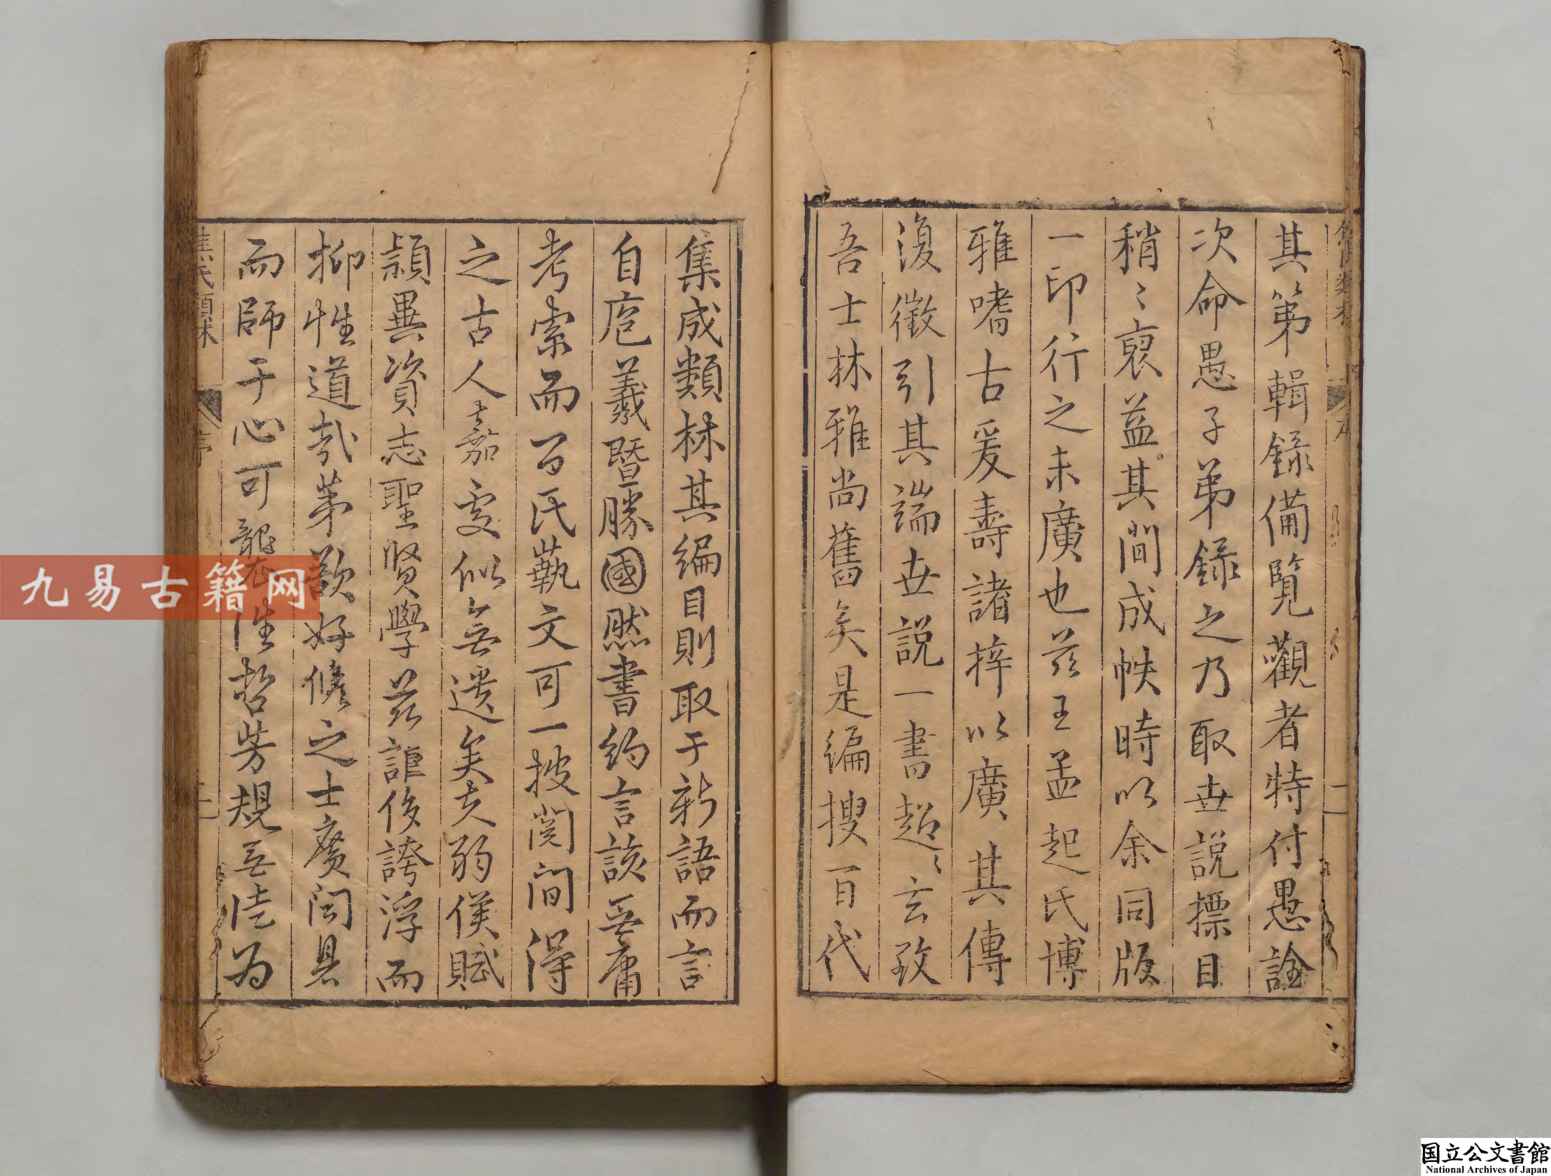 其第輯錄備覽觀者特付愚詮
次命愚子弟錄之乃取世說標目
稍〻裒益其間成帙時以余同版
一印行之未廣也茲王孟起氏博
雅嗜古爰壽諸梓以廣其傳
復徵引其端世說一書超〻玄致
吾士林雅尚舊矣是編搜百代
集成類林其編目則取于新語而言
自庖羲暨勝國默書約言該無庸
考索而百氏藝文可一披閱間得
之古人嘉處似無遺矣夫弱侯賦
穎異資志聖賢學茲詎侈誇浮而
抑性道哉第歆好修之士廣聞見
而師于心可
性哲芳規無徒為
焦氏類林
序
二
二
九易古籍网
国立公文書館
National Archives of Japan